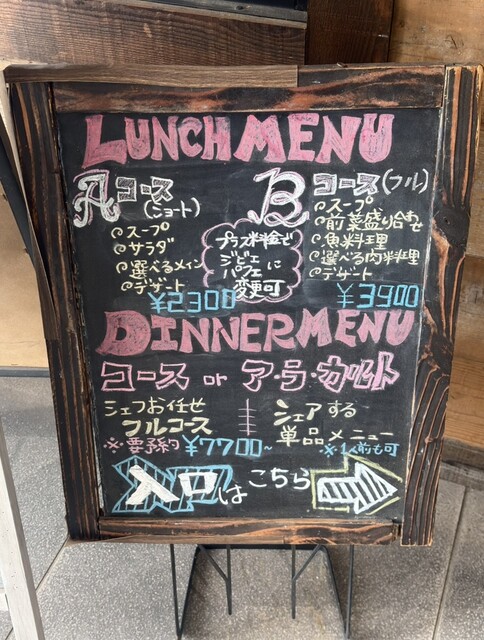 LUNCH MENU
Aコース
(ショート)
スープ
サラダ
選べるメイン
デザート
¥2300
プラス料金で
ジビエ
パフェに
変更可
Bコース(フル)
スープ
前菜盛り合わせ
魚料理
選べる肉料理
デザート
¥3900
DINNER MENU
コース or ア・ラ・カルト
シェフお任せ
フルコース
※要予約 ¥7700~
シェアする
単品メニュー
※1人前も可
入口はこちら